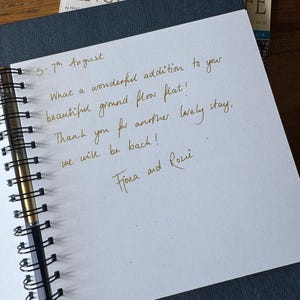 5-7th August
What a wonderful addition to your
beautiful ground floor flat!
Thank you for another lovely stay,
we will be back!
Fiona and Rosie